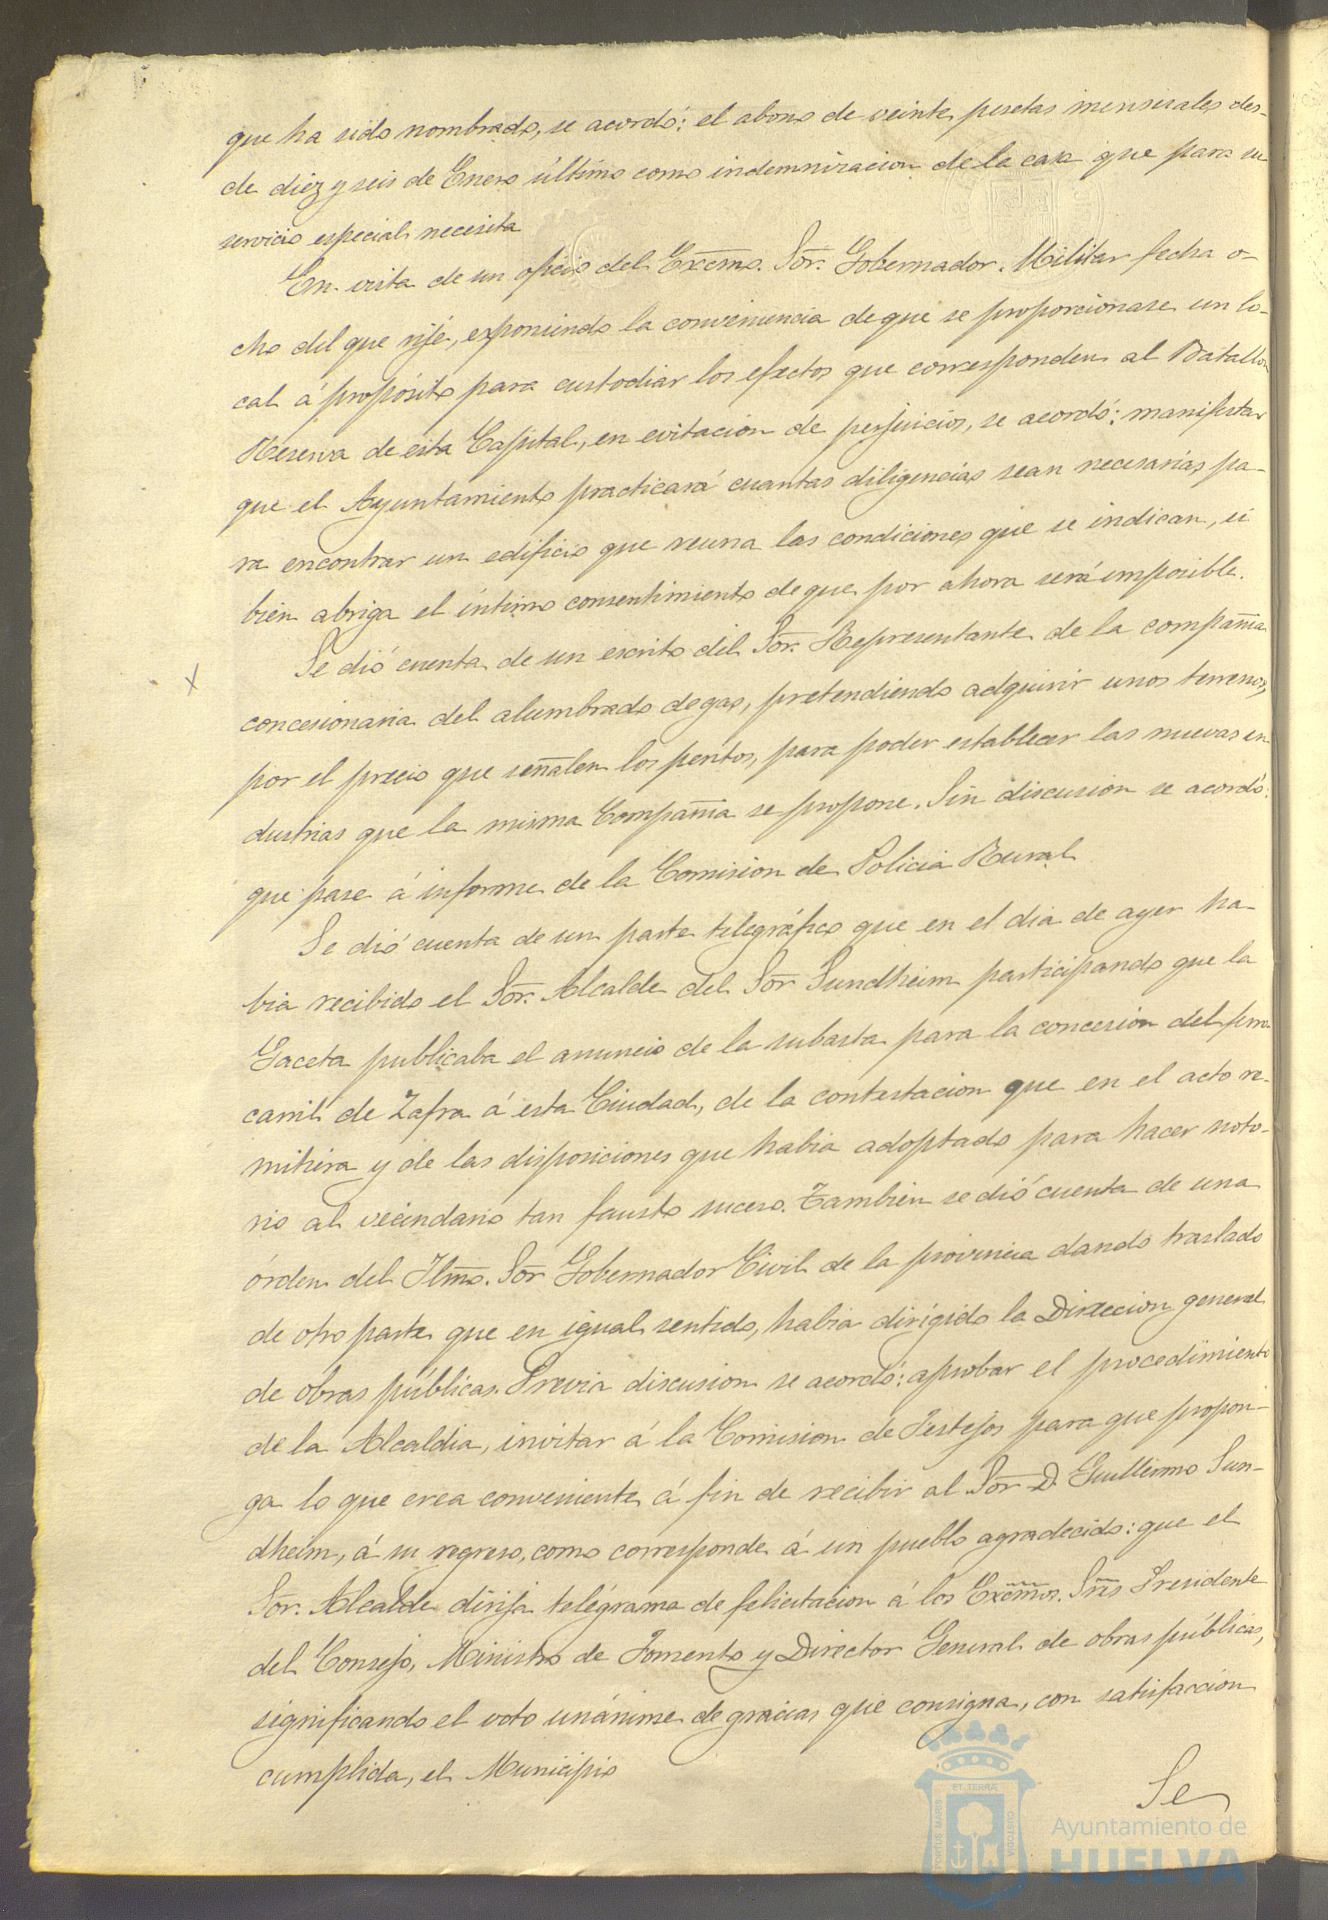 que ha sido nombrado, se acordó: el abono de veinte pesetas mensuales des-
de diez y seis de Enero último como indemnizacion de la casa que para su
servicio especial necesita
En vista de un oficio del Excmo. Sor. Gobernador Militar fecha o-
cho del que rije, exponiendo la conveniencia de que se proporcionase un lo-
cal á propósito para custodiar los efectos que corresponden al Batallon
Reserva de esta Capital, en evitacion de perjuicios, se acordó: manifestar
que el Ayuntamiento practicará cuantas diligencias sean necesarias pa-
ra encontrar un edificio que reuna las condiciones que se indican, si
bien abriga el íntimo consentimiento de que por ahora será imposible.
Se dió cuenta de un escrito del Sor. Representante de la compañia
concesionaria del alumbrado de gas, pretendiendo adquirir unos terrenos,
por el precio que señalen los peritos, para poder establecer las nuevas in
dustrias que la misma Compañia se propone. Sin discusion se acordó:
que pase á informe de la Comision de Policia Rural
Se dió cuenta de un parte telegráfico que en el dia de ayer ha-
bia recibido el Sor. Alcalde del Sor Sundheim participando que la
Gaceta publicaba el anuncio de la subasta para la concesion del ferro
carril de Zafra á esta Ciudad, de la contestacion que en el acto re-
mitiera y de las disposiciones que habia adoptado para hacer noto-
rio al vecindario tan fausto suceso. Tambien se dió cuenta de una
órden del Ilmo. Sor Gobernador Civil de la provincia dando traslado
de otro parte que en igual sentido, habia dirigido la Direccion general
de obras públicas. Previa discusion se acordó: aprobar el procedimiento
de la Alcaldia, invitar á la Comision de Festejos para que propon-
ga lo que crea conveniente á fin de recibir al Sor D. Guillermo Sun-
dheim, á su regreso, como corresponde á un pueblo agradecido: que el
Sor. Alcalde dirija telégrama de felicitacion á los Excmos. Sres Presidente
del Consejo, Ministro de Fomento y Director General de obras públicas,
significando el voto unánime de gracias que consigna, con satisfaccion
cumplida, el Municipio
Se
PORTUS MARIS ET TERRÆ CUSTODIA
Ayuntamiento de
HUELVA